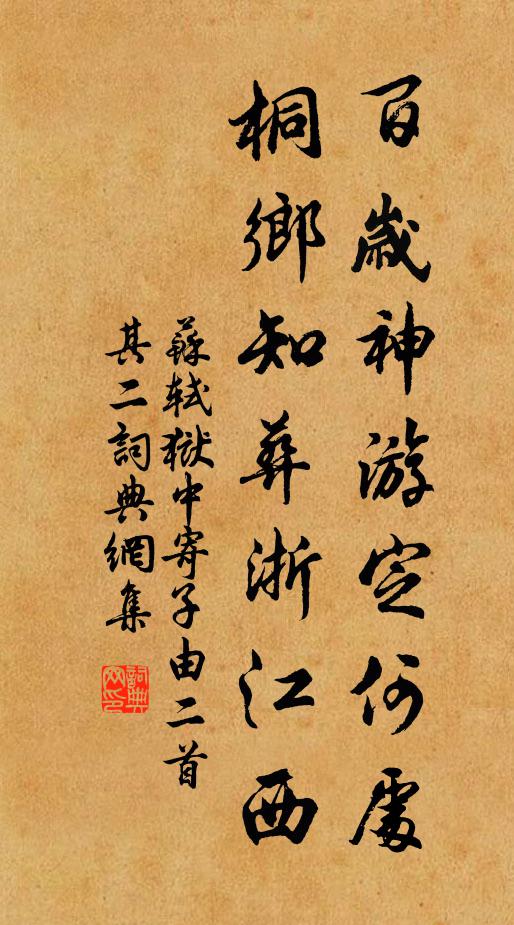 百歲神游定何處
桐鄉知葬浙江西
蘇軾獄中寄子由二首
其二詞典網集
詞典網印